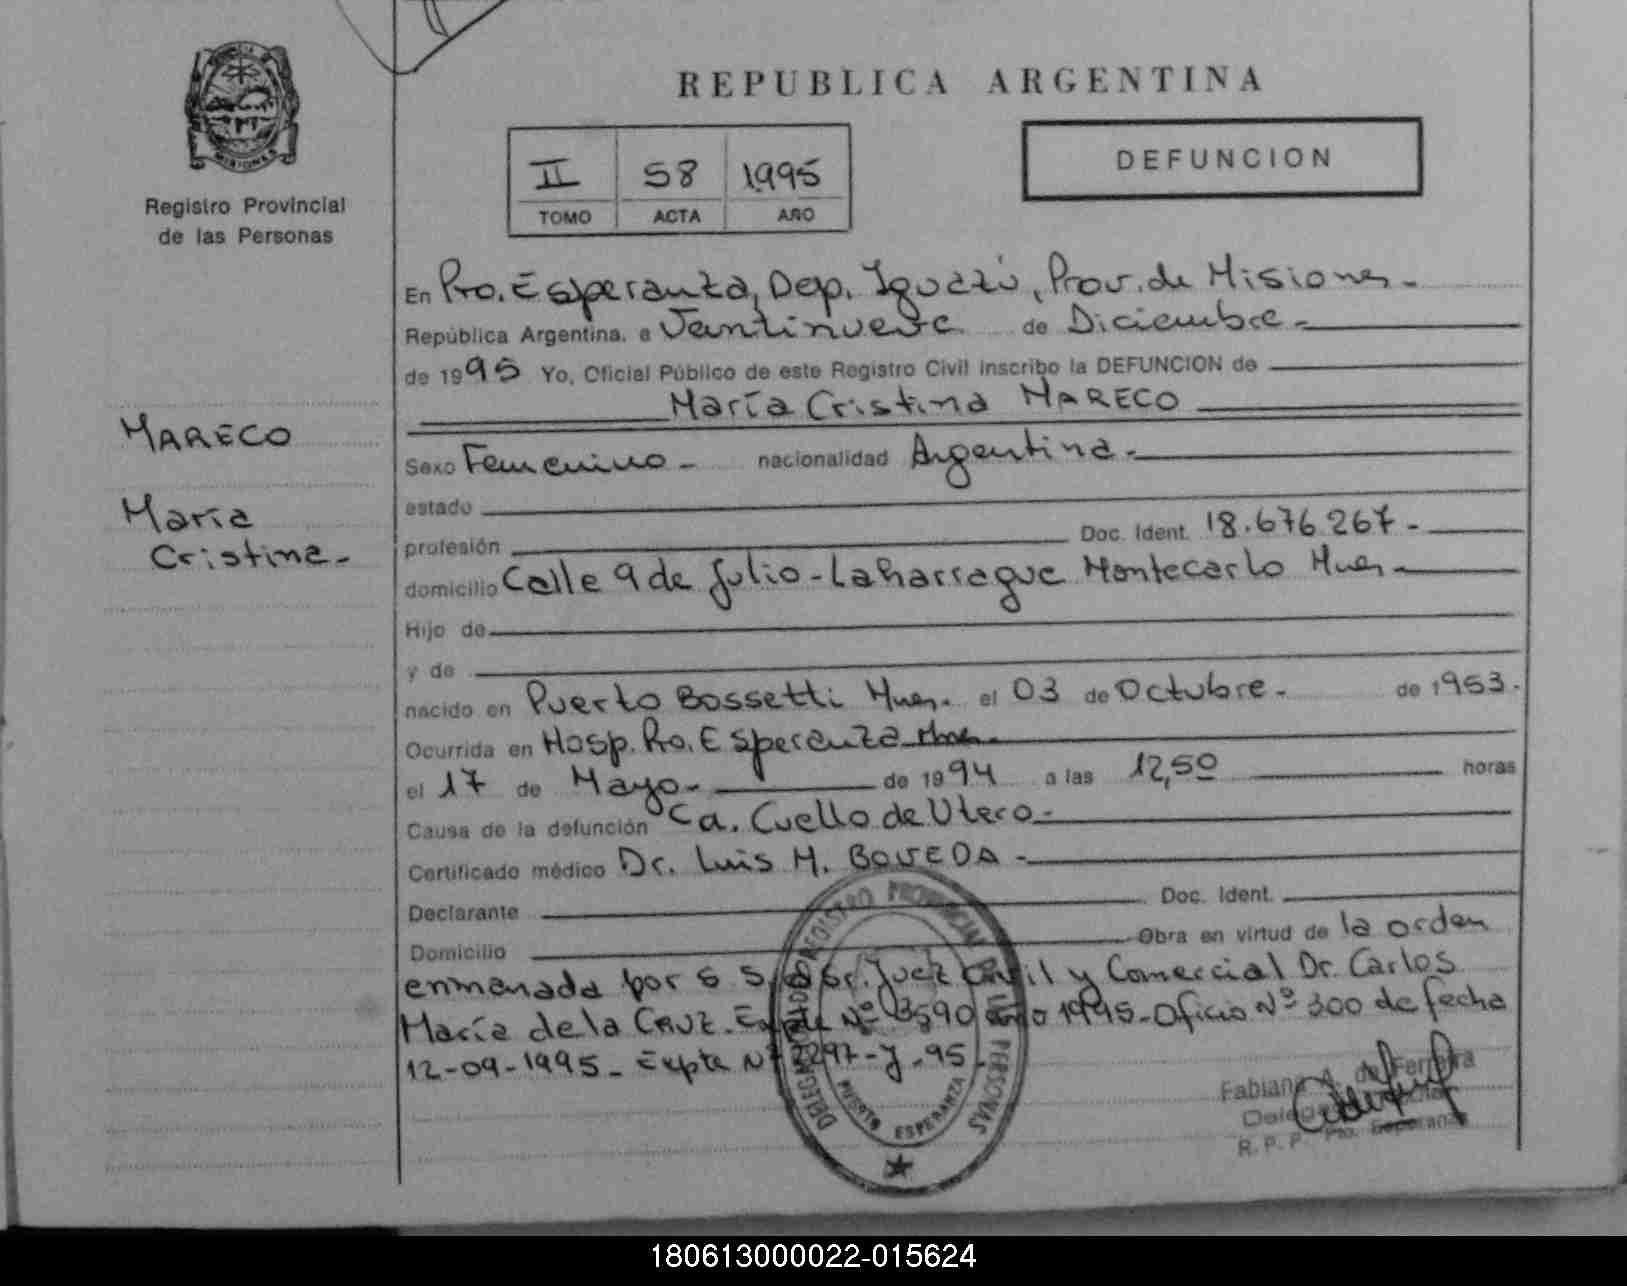 REPUBLICA ARGENTINA
MISIONES
Registro Provincial
de las Personas
II 58 1995
TOMO ACTA AÑO
DEFUNCION
En Pto. Esperanza, Dep. Iguazú, Prov. de Misiones -
República Argentina, a Veintinueve de Diciembre -
de 1995 Yo, Oficial Público de este Registro Civil inscribo la DEFUNCION de
María Cristina MARECO
MARECO
María
Cristina -
Sexo Femenino - nacionalidad Argentina -
estado
profesión Doc. Ident. 18.676.267 -
domicilio Calle 9 de Julio - Laharrague Montecarlo Mnes -
Hijo de
y de
nacido en Puerto Bossetti Mnes. el 03 de Octubre - de 1953 -
Ocurrida en Hosp. Pto. Esperanza Mnes -
el 17 de Mayo - de 1994 a las 12,50 horas
Causa de la defunción Ca. Cuello de Utero -
Certificado médico Dr. Luis M. BOVEDA -
Declarante Doc. Ident.
Domicilio Obra en virtud de la orden
enmanada por S. S. Sr. Juez Civil y Comercial Dr. Carlos
María de la CRUZ. Expte Nº 3590 año 1995 - Oficio Nº 300 de fecha
12-09-1995 - Expte Nº 2297-J-95 -
DELEGACION REGISTRO PROVINCIAL DE LAS PERSONAS
PUERTO ESPERANZA
Fabiana A. de Ferreira
R. P. P. Pto. Esperanza
180613000022-015624